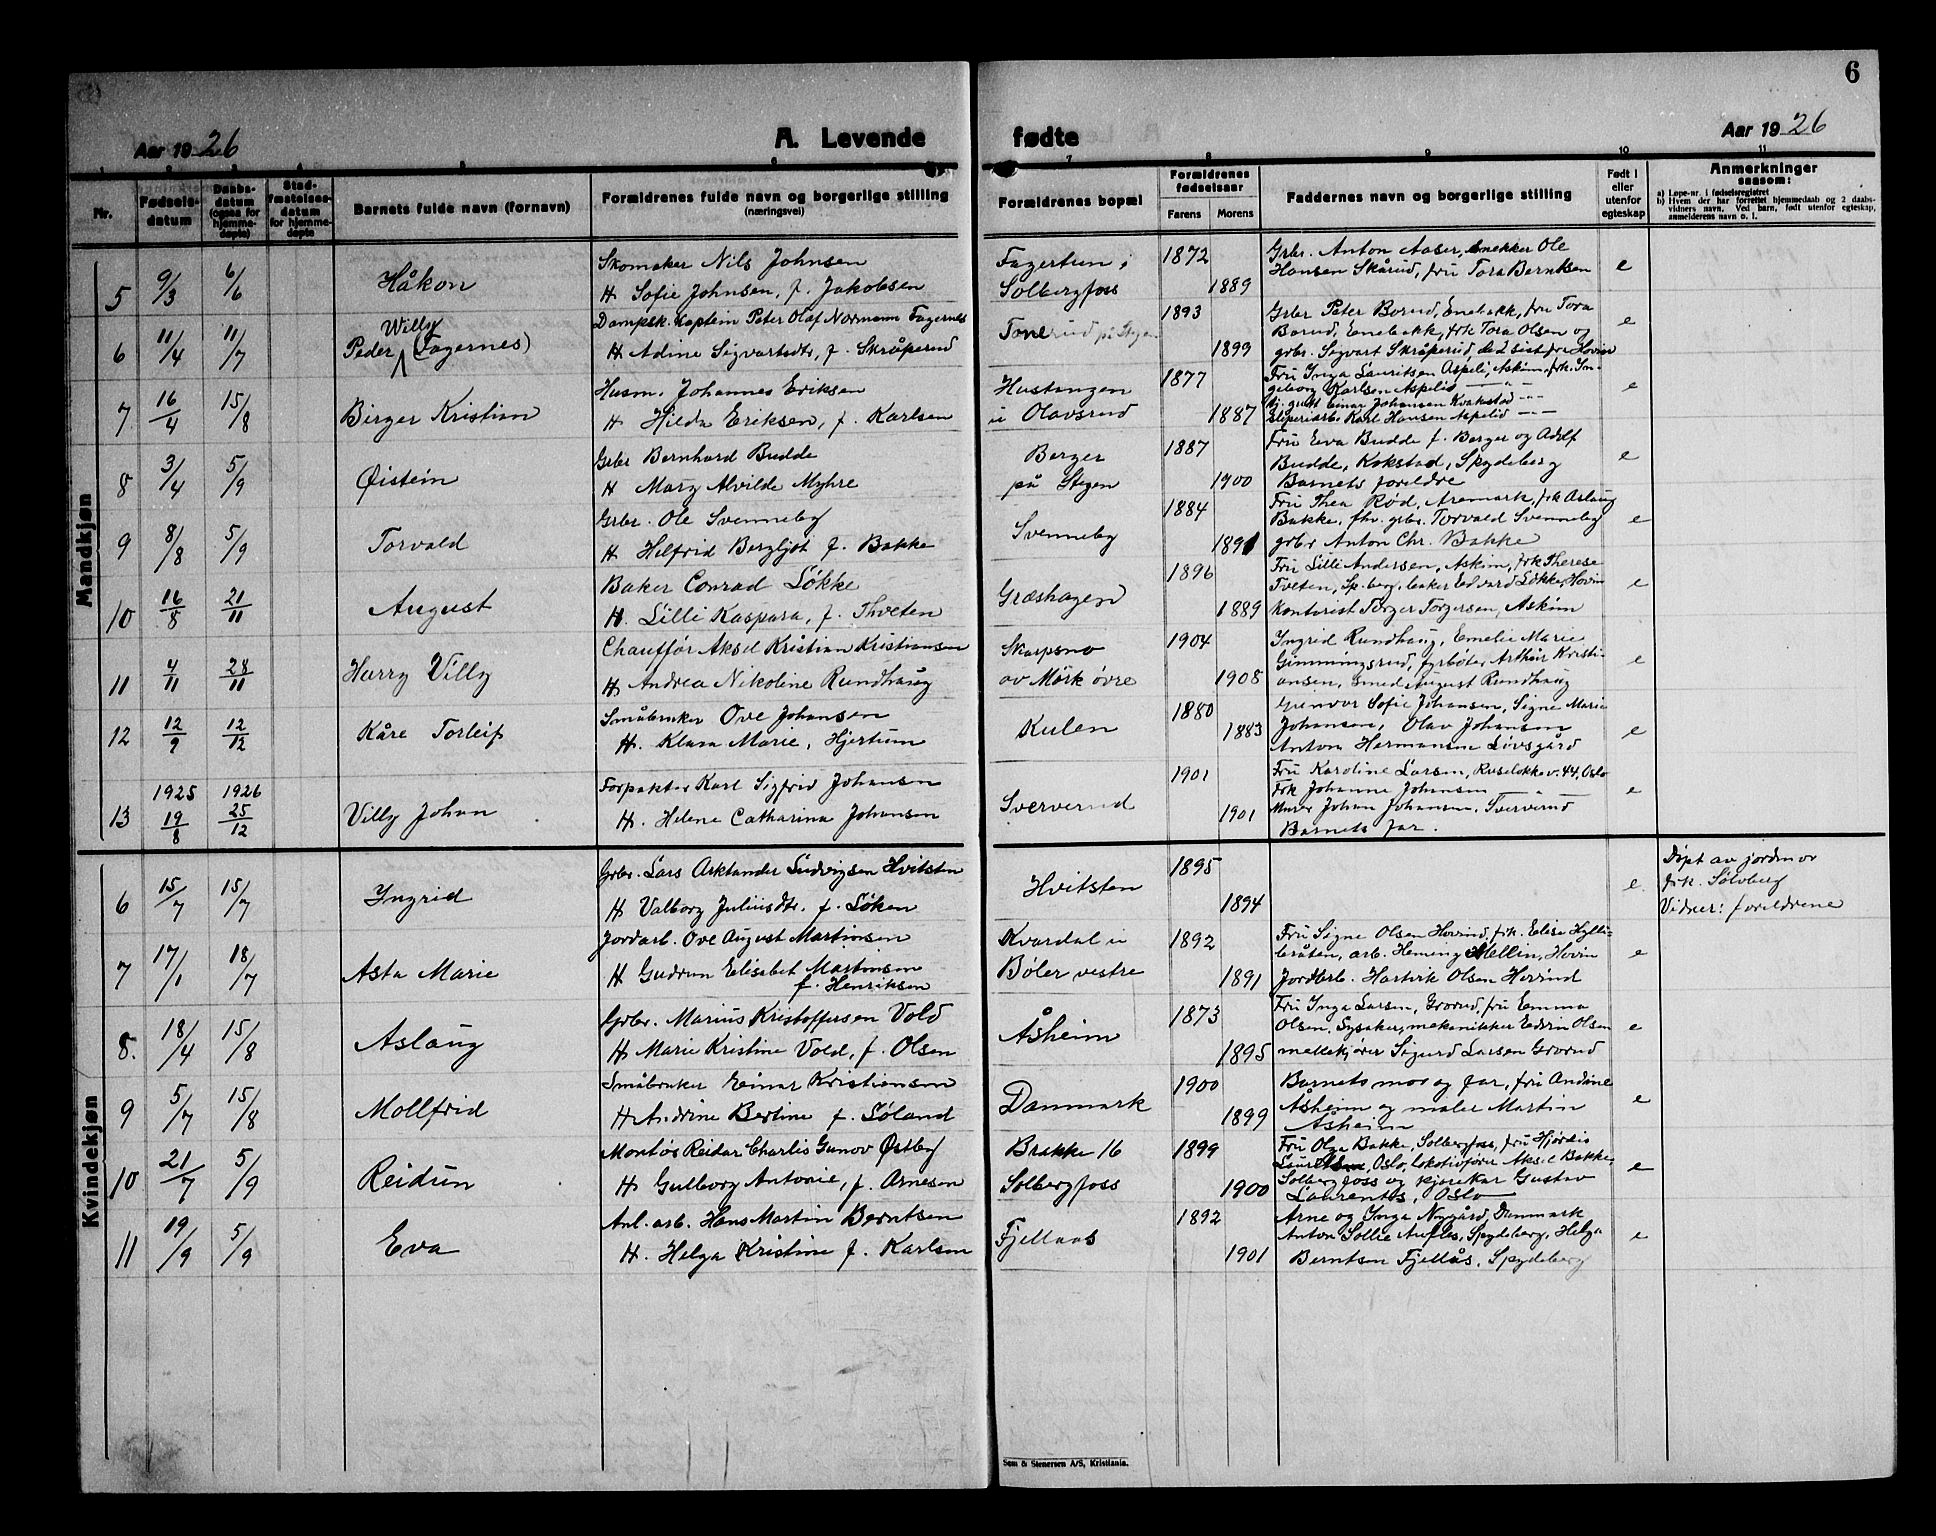 6
Aar 1926
A. Levende
fødte
Aar 1926
1 2 3 4 5 6 7 8 9 10 11
Nr.
Fødselsdatum
Daabsdatum (ogsaa for hjemmedøpte)
Stadfæstelsesdatum for hjemmedøpte
Barnets fulde navn (fornavn)
Forældrenes fulde navn og borgerlige stilling
(næringsvei)
Forældrenes bopæl
Forældrenes fødselsaar
Farens Morens
Faddernes navn og borgerlige stilling
Født i eller utenfor egteskap
Anmerkninger
saasom:
a) Løpe-nr. i fødselsregistret
b) Hvem der har forrettet hjemmedaab og 2 daabsvidners navn. Ved barn, født utenfor egteskap, anmelderens navn o. l.
Mandkjøn
5 9/3 6/6 Håkon
Skomaker Nils Johnsen
H Sofie Johnsen, f. Jakobsen
Fagertun i
Solbergfoss
1872
1889
Grbr. Anton Aaser, snekker Ole
Hansen Skårud, fru Tora Berntsen
e
6 11/4 11/7 Peder Willy (Fagernes)
Dampsk. kaptein Peter Olaf Normann Fagernes
H Adine Sigvartsdtr, f. Skråperud
Tonerud på Stegen
1893
1899
Grbr Peter Borud, Enebakk, fru Tora
Borud, Enebakk, frk Tora Olsen og
grbr. Sigvart Skråperud, de 2 sist fra Hovin
e
7 16/4 15/8 Birger Kristian
Husm. Johannes Eriksen
H Hilda Eriksen, f. Karlsen
Hustangen
u Olavsrud
1877
1887
Fru Inga Lauritsen Aspeli, Askim, frk. In-
geborg Karlsen Aspelid
gutt Einar Johansen Kvakstad
Sliperiarb. Karl Hansen Aspelid
e
8 3/4 5/9 Øistein
Grbr Bernhard Budde
H Mary Alvilde Myhre
Berger
på Stegen
1887
1900
Fru Eva Budde f. Berger og Adolf
Budde, Kokstad, Spydeberg
Barnets foreldre
e
9 8/8 5/9 Torvald
Grbr. Ole Svenneby
H Helfrid Bergljot f. Bakke
Svenneby
1884
1891
Fru Thea Rød, Aremark, frk Aslaug
Bakke, fhv. grbr. Torvald Svenneby
grbr Anton Chr. Bakke
e
10 16/8 21/11 August
Baker Conrad Løkke
H. Lilli Kaspara, f. Thveten
Græshagen
1896
1889
Fru Lilli Andersen, Askim, frk Therese
Tveten, Sp.berg, baker Edvard Løkke, Hovin
Kontorist Torger Torgersen, Askim
e
11 4/11 28/11 Harry Villy
Chauffør Aksel Kristian Kristiansen
H Andrea Nikoline Rundhaug
Skarpsno
av Mørk øvre
1904
1908
Ingrid Rundhaug, Emelie Marie
Gimmingsrud, fyrbøter Arthur Kristi-
ansen, Smed August Rundhaug
e
12 12/9 12/12 Kåre Torleif
Småbruker Ove Johansen
H. Klara Marie, Hjertum
Kulen
1880
1883
Gunvor Sofie Johansen, Signe Marie
Johansen, Olav Johansen
Anton Hermansen Løvsgård
e
13 1925 19/8 1926 25/12 Villy Johan
Forpakter Karl Sigfrid Johansen
H. Helene Catharina Johansen
Sververud
1901
1901
Fru Karoline Larsen, Ruseløkkev. 44, Oslo
Frk Johanne Johansen
Murer Johan Johansen, Sververud
Barnets far.
e
Kvindekjøn
6 15/7 15/7 Ingrid
Grbr. Lars Arktander Ludvigsen Hvitsten
H Valborg Juliusdtr. f. Løken
Hvitsten
1895
1894
e.
Døpt av jordmor
frk. Sølvberg
Vidner: foreldrene
7 17/1 18/7 Asta Marie
Jordarb. Ove August Martinsen
H Gudrun Elisabet Martinsen
f. Henriksen
Kvardal u
Bøler vestre
1892
1891
Fru Signe Olsen Hovind, frk. Elise Hylli-
bråten, arb. Heming Mellin, Hovin
Jordarb. Hartvik Olsen Hovind
e
8. 18/4 15/8 Aslaug
Grbr. Marius Kristoffersen Vold
H Marie Kristine Vold, f. Olsen
Åsheim
1873
1895
Fru Inga Larsen, Grorud, fru Emma
Olsen, Sysaker, mekanikker Edvin Olsen
melkekjører Sigurd Larsen Grorud
e
9 5/7 15/8 Mollfrid
Småbruker Einar Kristiansen
H Andrine Bertine f. Søland
Danmark
1900
1899
Barnets mor og far, fru Andine
Åsheim og maler Martin
Åsheim
e
10 21/7 5/9 Reidun
Montør Reidar Charlis Gunov Østby
H. Gulborg Antonie, f. Arnesen
Brakke 16
Solbergfoss
1899
1900
Fru Olga Bakke, Solbergfoss, fru Hjørdis
Oslo, lokotivfører Aksel Bakke,
Solbergfoss og kjørekar Gustav
Laurentis, Oslo
e
11 19/9 5/9 Eva
Anl. arb. Hans Martin Berntsen
H. Helga Kristine f. Karlsen
Fjellaas
1892
1901
Arne og Inga Nygård, Danmark
Anton Sollie Aufles, Spydeberg, Helga
Berntsen Fjellås, Spydeberg
e
Søm & Stenersen A/S, Kristiania.